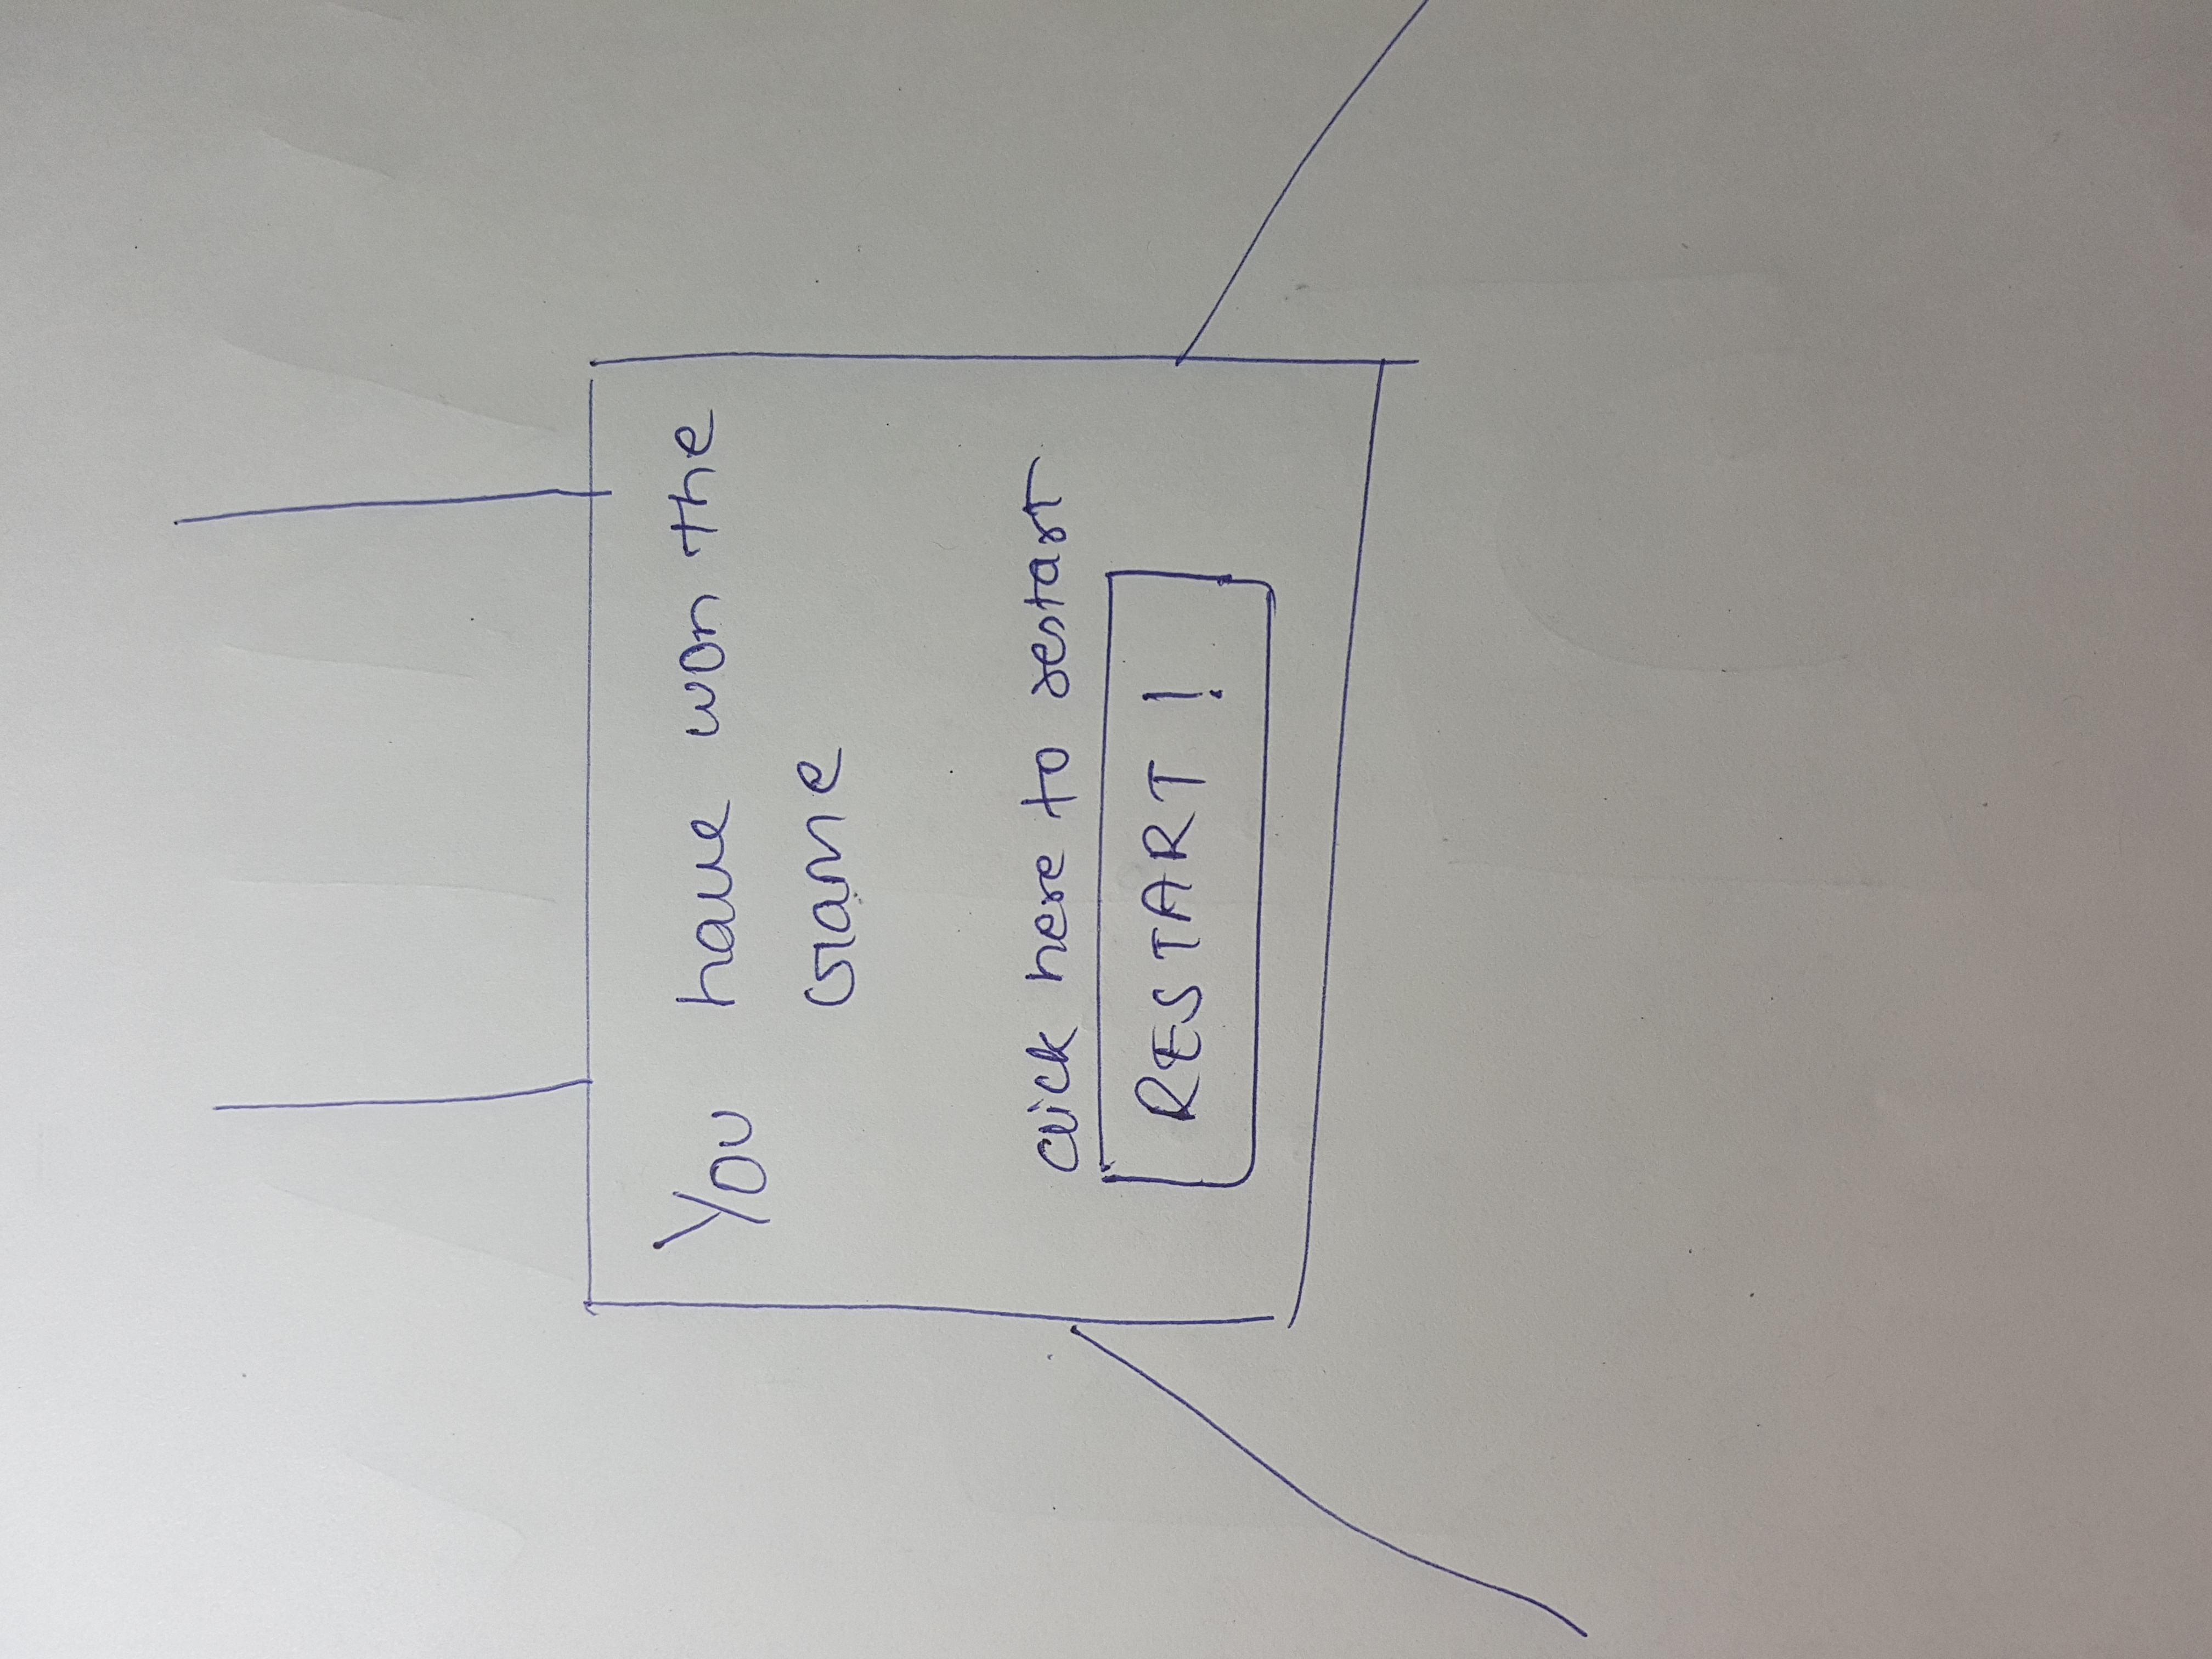 You have won the
Game
click here to restart
RESTART !